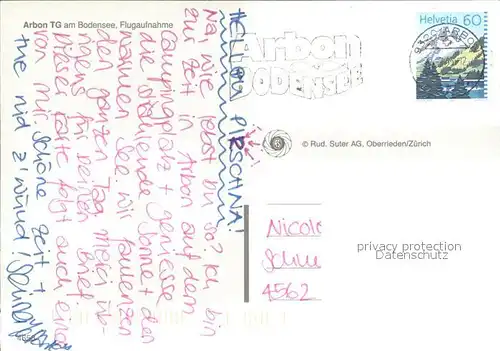 Arbon TG am Bodensee, Flugaufnahme
HELLAU PIRSCHNA!
Na, wie lebst du so? Ich bin
zur Zeit in Arbon auf dem
Campingplatz + geniesse
die strahlende Sonne + den
warmen See. Wir faulenzen
den ganzen Tag. Merci
für deinen Brief.
Dieser Karte folgt auch einer
von mir. Schöne Zeit +
tue nid z'
Helvetia 60
9320 ARBON
Arbon
BODENSEE
© Rud. Suter AG, Oberrieden/Zürich
Nicole
4562
privacy protection
Datenschutz